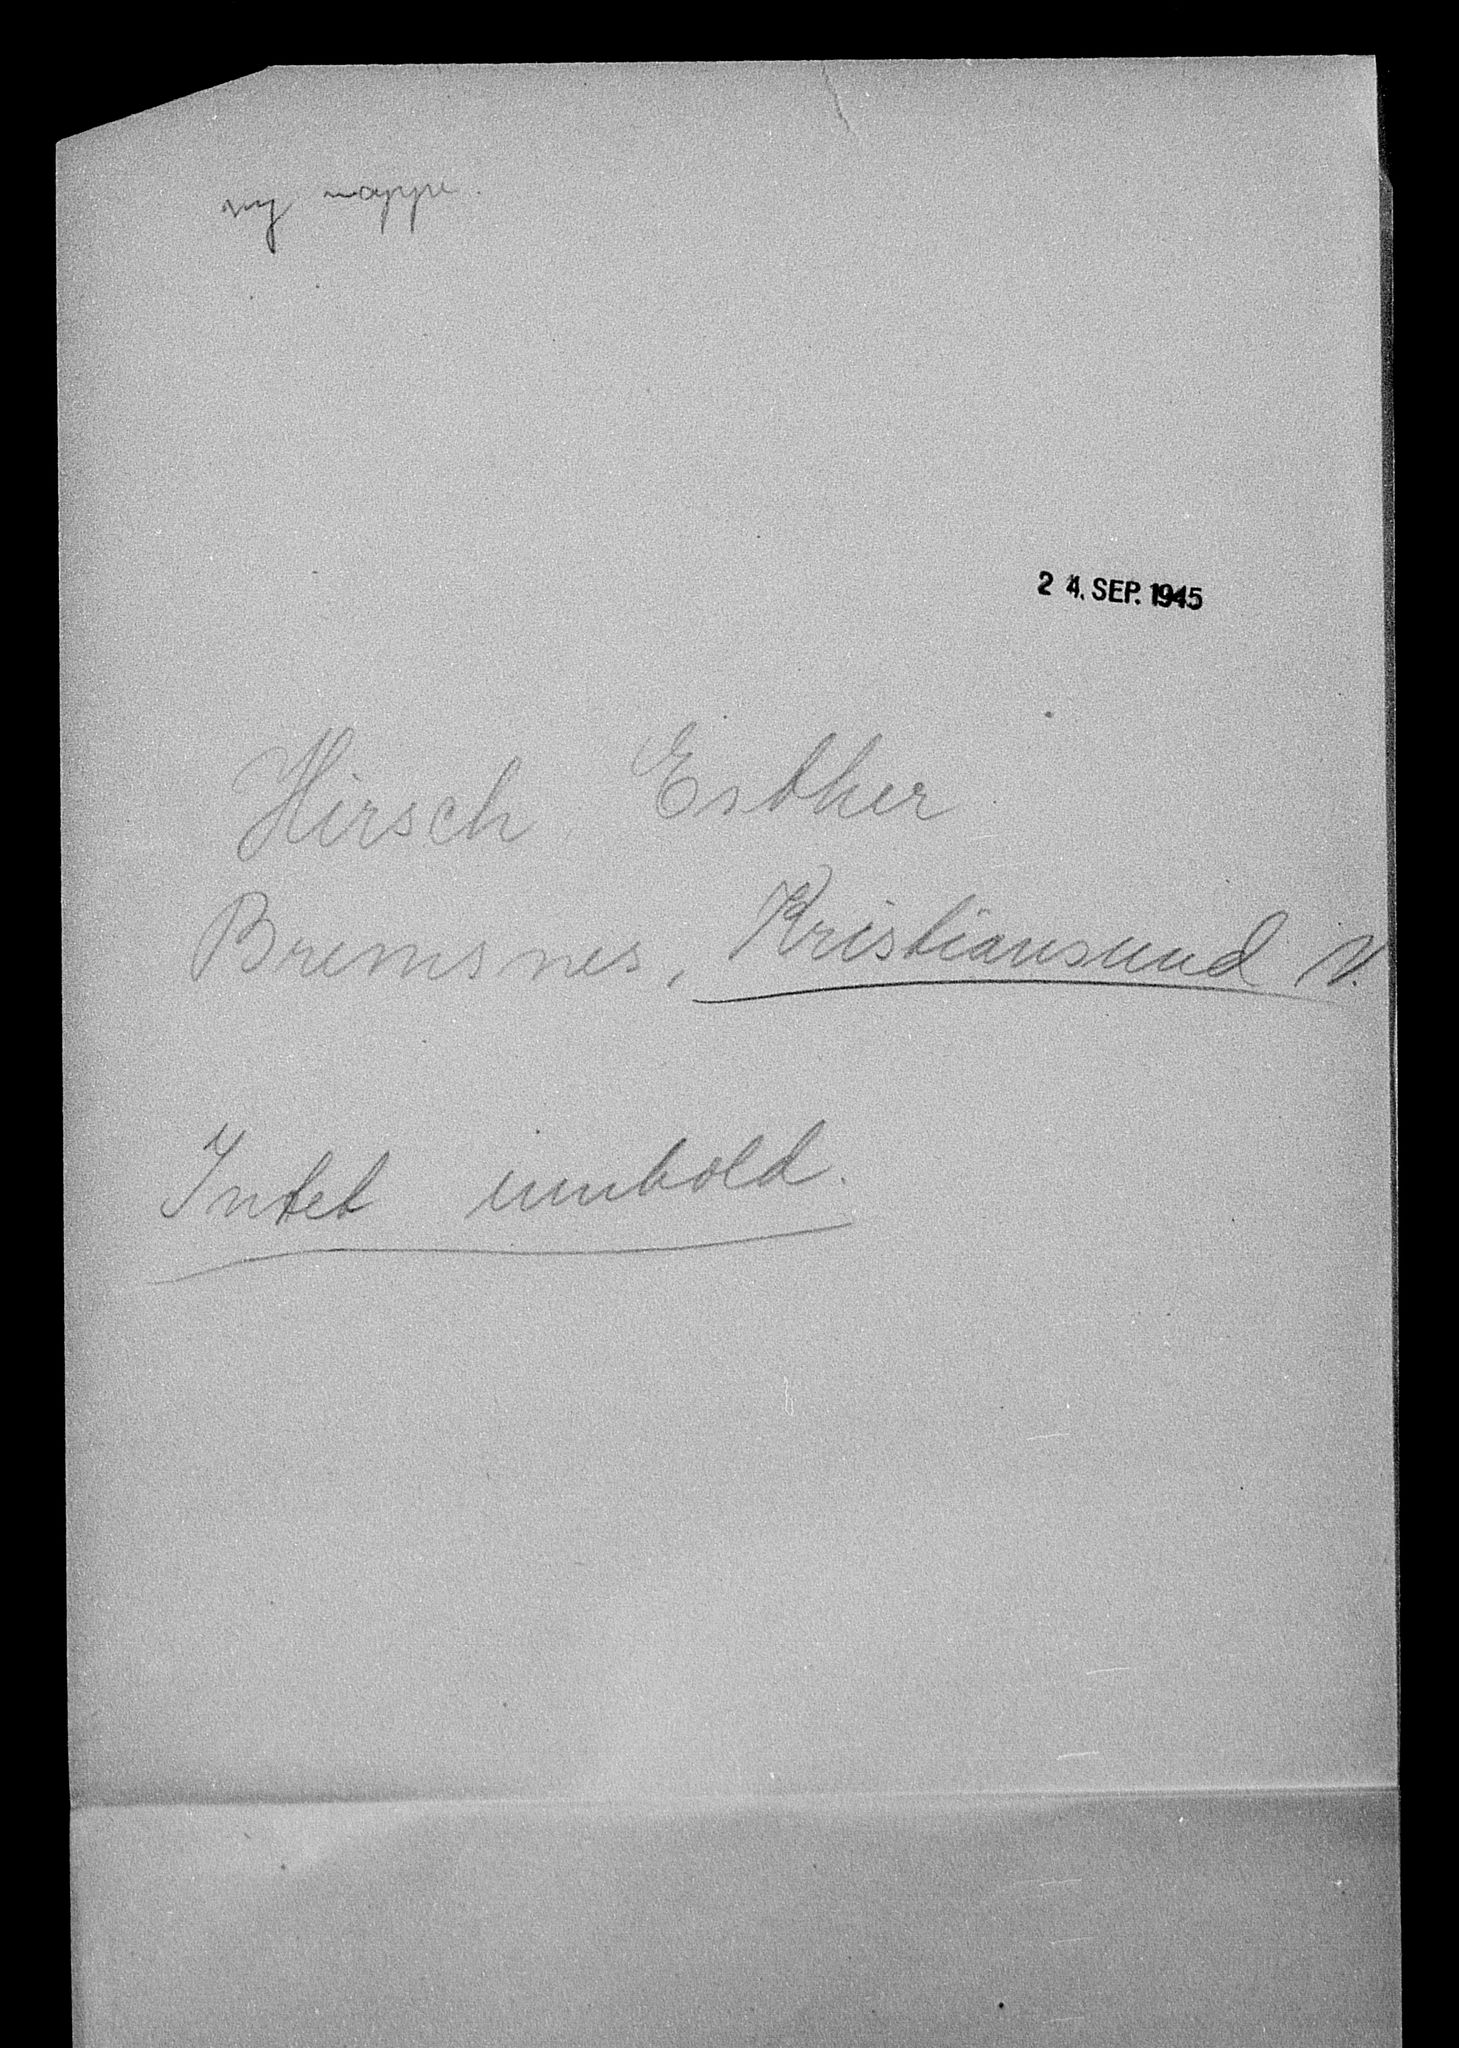 ny mappe.
24. SEP. 1945
Hirsch, Esther
Bremsnes, Kristiansund N.
Intet innhold.